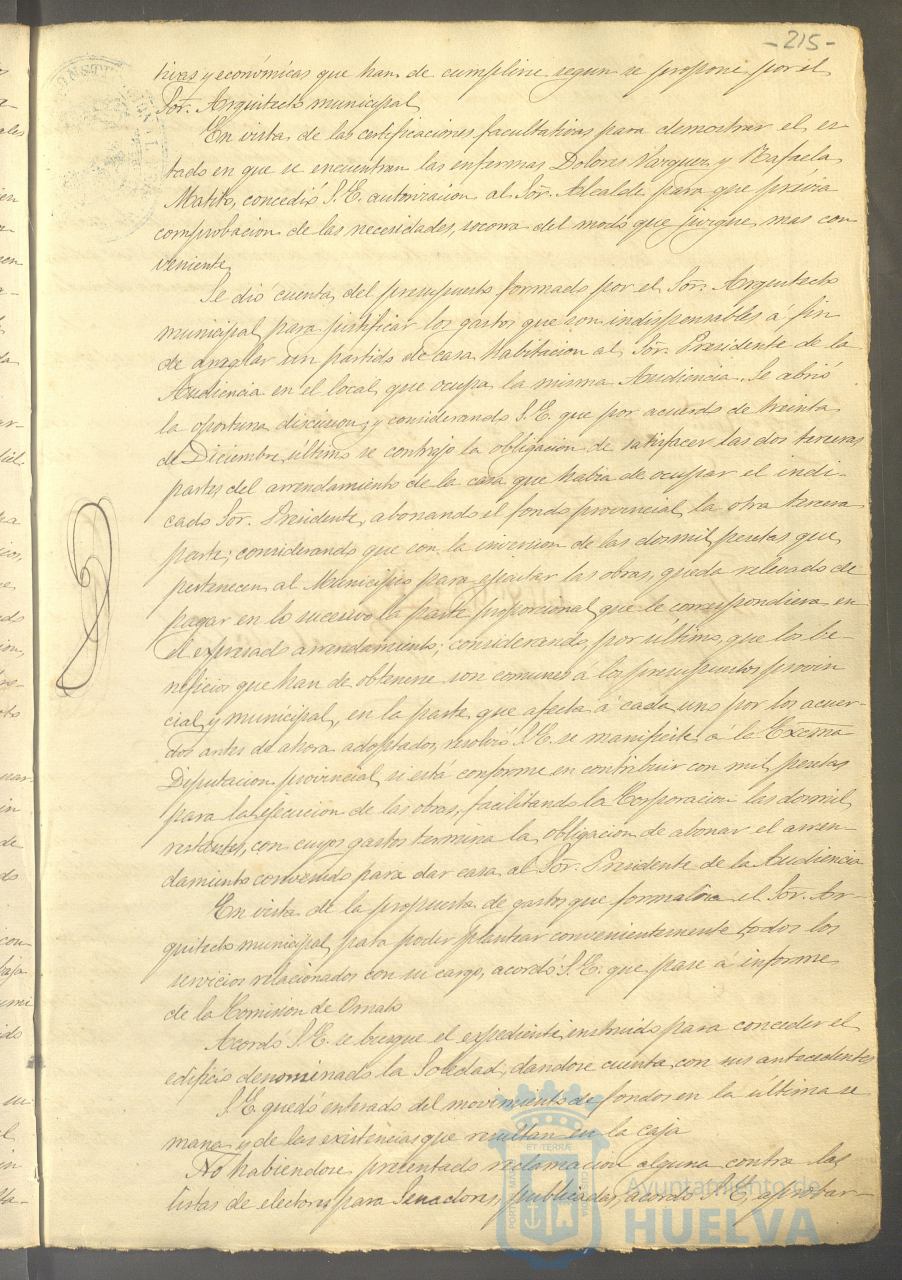 -215-
tivas y económicas que han de cumplirse segun se propone por el
Sor. Arquitecto municipal
En vista de las certificaciones facultativas para demostrar el es-
tado en que se encuentran las enfermas Dolores Vazquez y Rafaela
concedió S.E. autorizacion al Sor. Alcalde para que previa
comprobacion de las necesidades, socorra del modo que juzgue mas con
veniente
Se dió cuenta del presupuesto formado por el Sor. Arquitecto
municipal para justificar los gastos que son indispensables á fin
de arreglar un partido de casa habitacion al Sor. Presidente de la
Audiencia en el local que ocupa la misma Audiencia. Se abrió
la oportuna discusion, y considerando S.E. que por acuerdo de treinta
de Diciembre último se contrajo la obligacion de satisfacer las dos terceras
partes del arrendamiento de la casa que habia de ocupar el indi-
cado Sor. Presidente, abonando el fondo provincial la otra tercera
parte; considerando que con la inversion de las dosmil pesetas que
pertenecen al Municipio para ejecutar las obras, queda relevado de
pagar en lo sucesivo la parte proporcional que le correspondiera en
el expresado arrendamiento; considerando, por último, que los be-
neficios que han de obtenerse son comunes á los presupuestos provin
cial y municipal, en la parte que afecta á cada uno por los acuer-
dos antes de ahora adoptados, resolvió S.E. se manifieste á la Excma
Diputacion provincial si está conforme en contribuir con mil pesetas
para la ejecucion de las obras, facilitando la Corporacion las dosmil
restantes, con cuyos gastos termina la obligacion de abonar el arren-
damiento convenido para dar casa al Sor. Presidente de la Audiencia
En vista de la propuesta de gastos que formaliza el Sor. Ar-
quitecto municipal para poder plantear convenientemente todos los
servicios relacionados con su cargo, acordó S.E. que pase á informe
de la Comision de Ornato
Acordó S.E. se busque el expediente instruido para conceder el
edificio denominado la Soledad, dandose cuenta con sus antecedentes
S.E. quedó enterado del movimiento de fondos en la última se
mana y de las existencias que resultan en la caja
No habiendose presentado reclamacion alguna contra las
listas de electores para Senadores, publicadas, acordó S.E. aprobar-
Ayuntamiento de
HUELVA